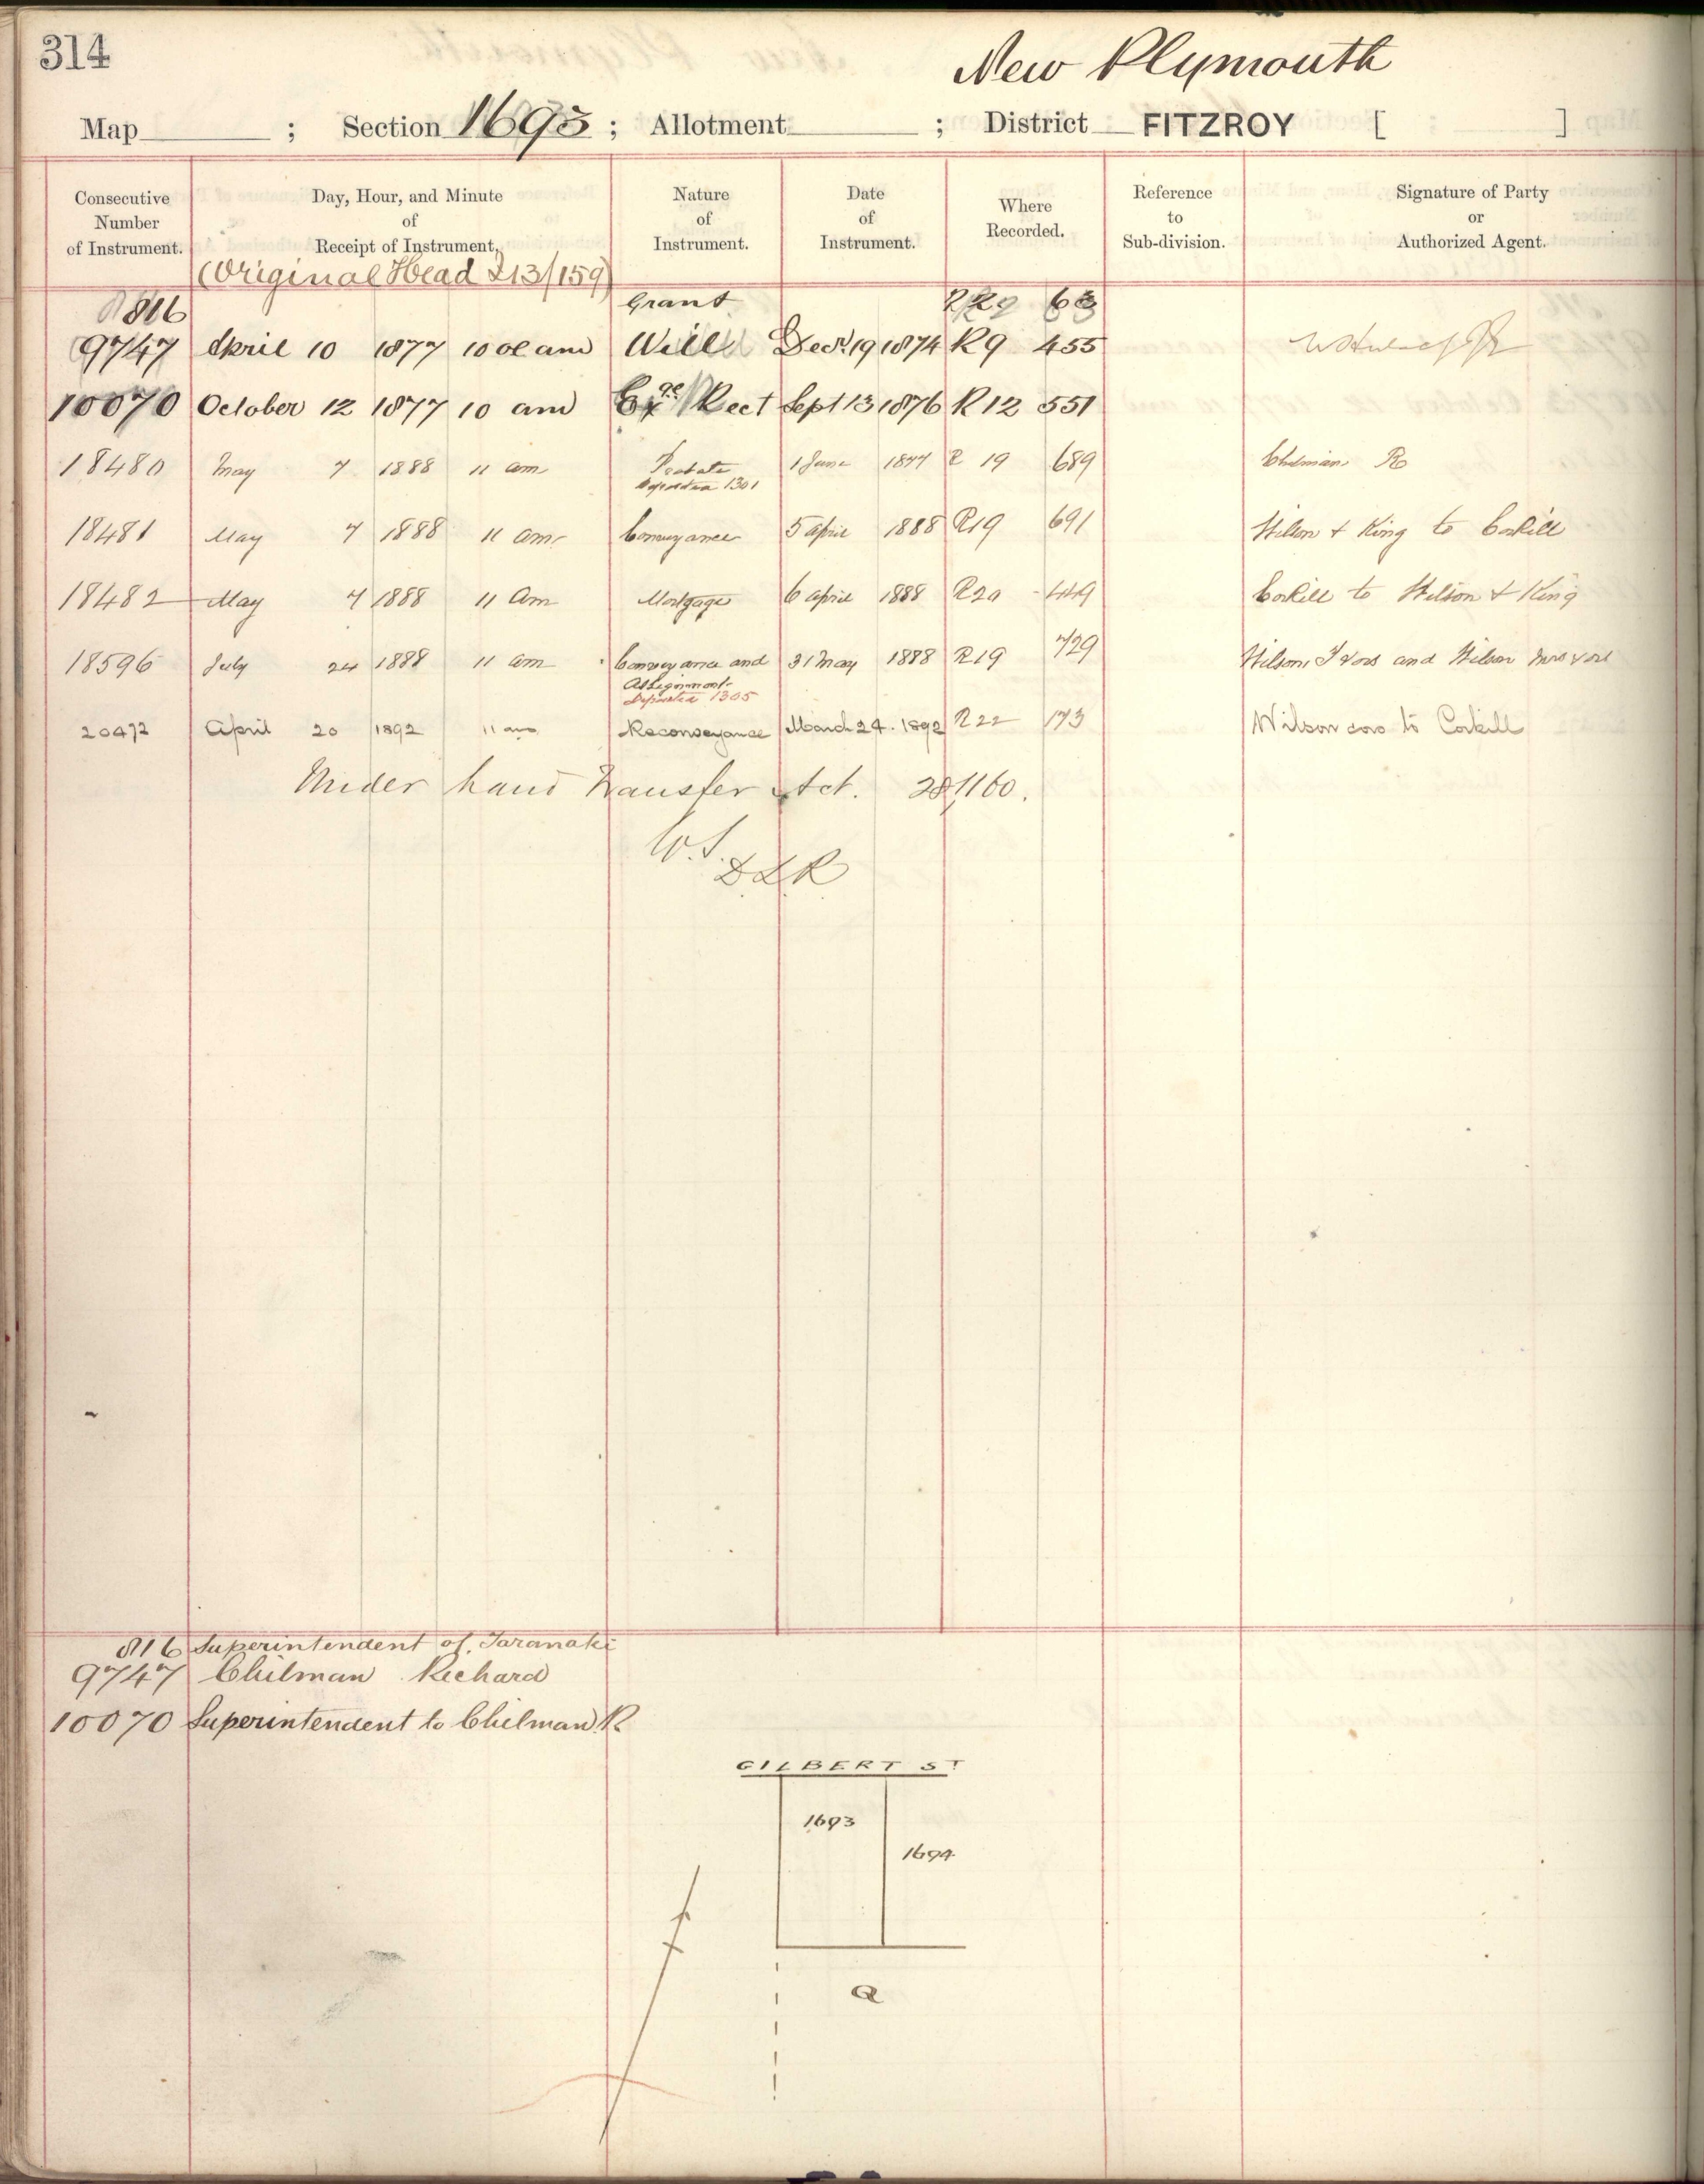 314
New Plymouth
Map ; Section 1693 ; Allotment ; District FITZROY [ ]
Consecutive Number of Instrument.
Day, Hour, and Minute of Receipt of Instrument.
Nature of Instrument.
Date of Instrument.
Where Recorded.
Reference to Sub-division.
Signature of Party or Authorized Agent.
(Original Head 213/159)
816 Grant 63
9747 April 10 1877 10 am Will Decr. 19 1874 R9 455
10070 October 12 1877 10 am Rect Sept 13 1876 R12 551
18480 May 7 1888 11 am Probate 1 June 1877 R 19 689 Chilman R
1301
18481 May 7 1888 11 am Conveyance 5 April 1888 R19 691 Wilson + King to Corkill
18482 May 7 1888 11 am Mortgage 6 April 1888 R20 449 Corkill to Wilson + King
18596 July 24 1888 11 am Conveyance and 31 May 1888 R19 729 Wilson, T & ors and Wilson Mrs & ors
Assignment
Deposited 1305
20472 April 20 1892 11 am Reconveyance March 24. 1892 R22 173 Wilson & ors to Corkill
Under Land Transfer Act. 28/160.
W.S.
D.L.R.
816 Superintendent of Taranaki
9747 Chilman Richard
10070 Superintendent to Chilman R
GILBERT ST
1693
1694
Q